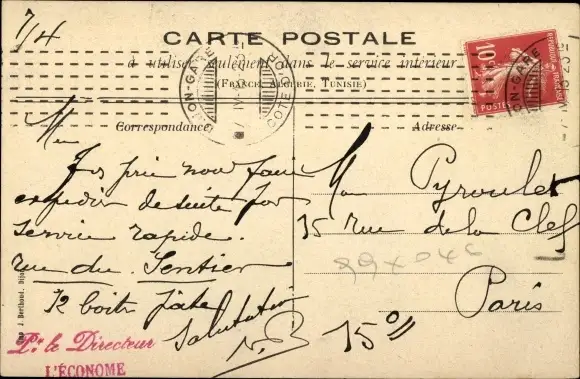 7/4
CARTE POSTALE
à utiliser seulement dans le service intérieur
(FRANCE, ALGÉRIE, TUNISIE)
Correspondance
Adresse
REPUBLIQUE FRANÇAISE
10
POSTES
DIJON-GARE
COTE D'OR
DIJON-GARE
prie nous faire
expédier de suite par
service rapide.
rue du Sentier
12 boîtes
Salutations
Pyroulet
15 rue de la Clef
99 x 046
Paris
15 %
J. Berthoud, Dijon
Pr. le Directeur
L'ÉCONOME